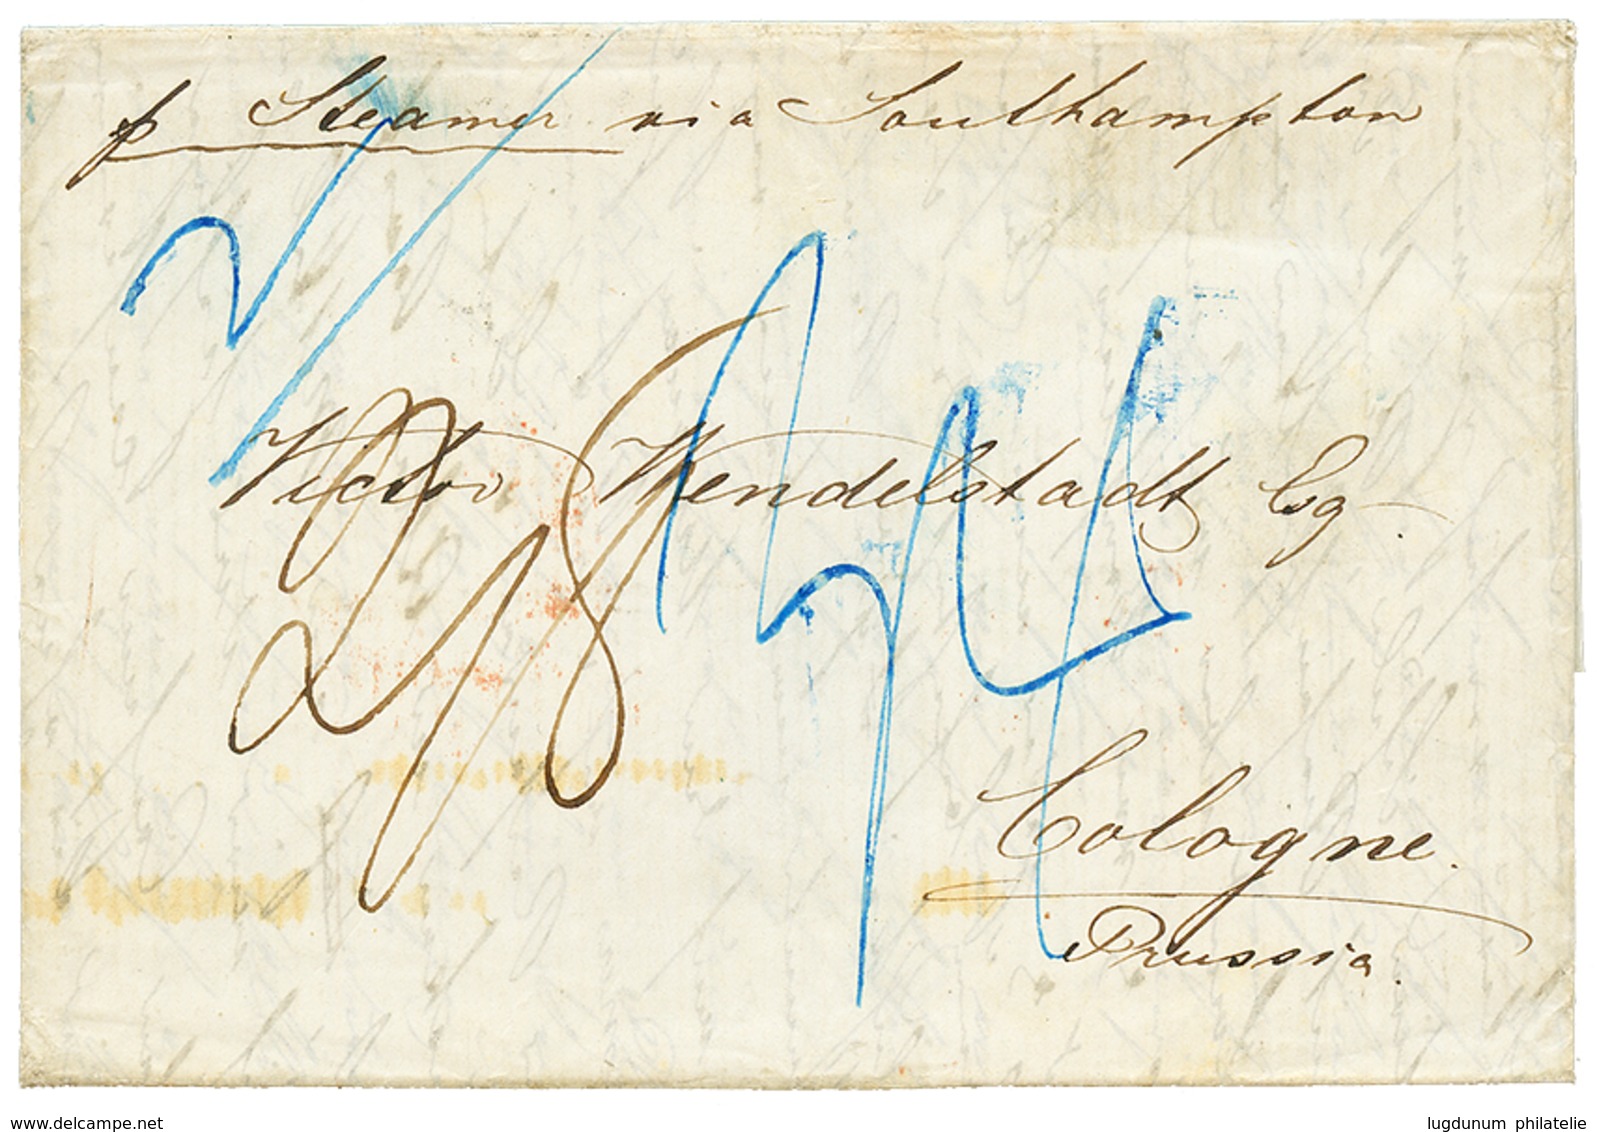 p Steamer via Southampton
Victor Wendelstadt Esq.
Cologne.
Prussia.
www.delcampe.net
lugdunum philatelie